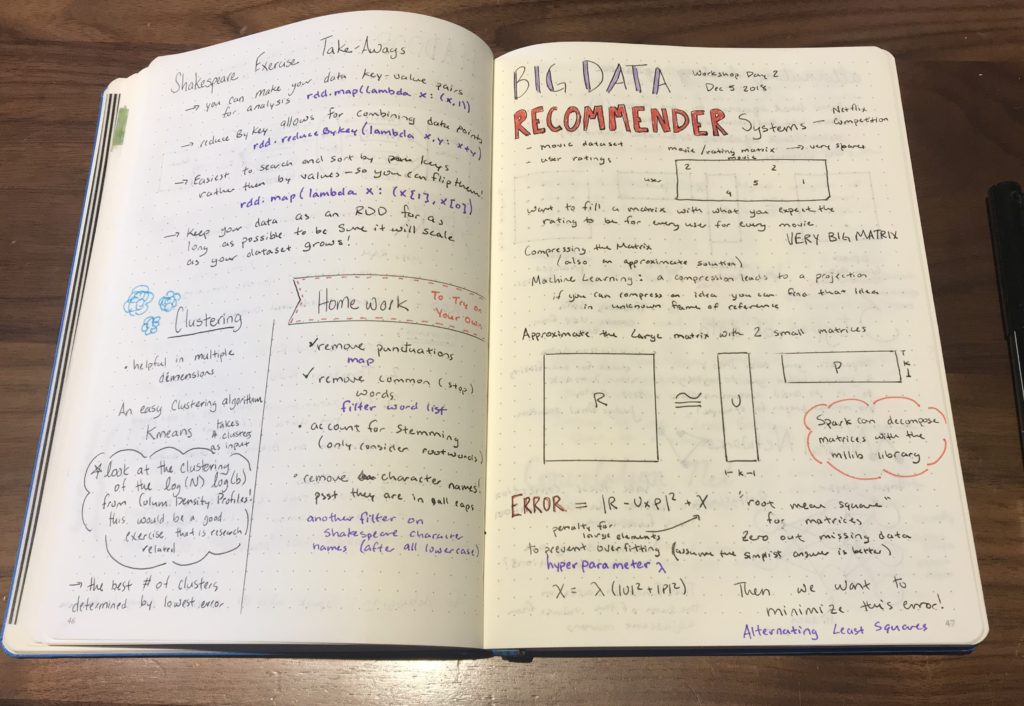 Shakespeare Exercise Take-Aways
→ you can make your data key-value pairs
for analysis rdd.map(lambda x: (x,1))
→ reduce By Key allows for combining data points
rdd.reduceByKey(lambda x,y: x+y)
→ Easiest to search and sort by keys
rather then by values - so you can flip them!
rdd.map(lambda x: (x[1], x[0])
→ Keep your data as an RDD for as
long as possible to be sure it will scale
as your dataset grows!
Clustering
• helpful in multiple
dimensions
An easy clustering algorithm
Kmeans takes
# clusters
as input
☆ look at the clustering
of the log(N) log(b)
from Column Density Profiles!
this would be a good
exercise that is research
related
→ the best # of clusters
determined by lowest error.
46
Homework To Try on
Your Own
✓ remove punctuations
map
✓ remove common (stop)
words.
filter word list
• account for stemming
(only consider root words)
• remove character names!
psst they are in all caps
another filter on
Shakespeare character
names (after all lowercase)
BIG DATA Workshop Day 2
Dec 5 2018
RECOMMENDER Systems — Netflix
Competition
- movie dataset movie/rating matrix → very sparse
- user ratings
movie
user
2 2
5 1
4
want to fill a matrix with what you expect the
rating to be for every user for every movie.
VERY BIG MATRIX
Compressing the Matrix
(also an approximate solution)
Machine Learning: a compression leads to a projection
if you can compress an idea you can find that idea
in unknown frame of reference
Approximate the large matrix with 2 small matrices
R ≅ U P
k
⊢ k ⊣
Spark can decompose
matrices with the
mllib library
ERROR = |R - U×P|² + X
"root mean square"
for matrices
zero out missing data
penalty for
large elements
to prevent overfitting (assume the simplist answer is better)
hyperparameter λ
X = λ (|U|² + |P|²)
Then we want to
minimize this error!
Alternating Least Squares
47